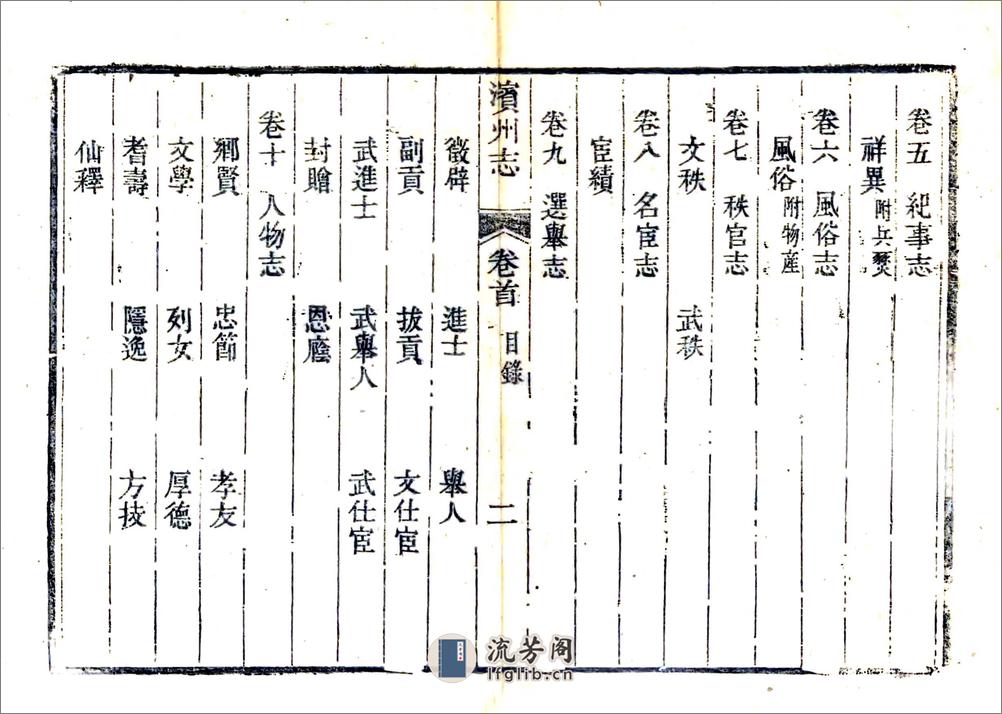 卷五　紀事志
祥異 附兵燹
卷六　風俗志
風俗 附物產
卷七　秩官志
文秩　武秩
卷八　名宦志
宦績
卷九　選舉志
濱州志　卷首　目錄　二
徵辟　進士　舉人
副貢　拔貢　文仕宦
武進士　武舉人　武仕宦
封贈　恩廕
卷十　人物志
鄉賢　忠節　孝友
文學　列女　厚德
耆壽　隱逸　方技
仙釋
流芳阁
lfglib.cn